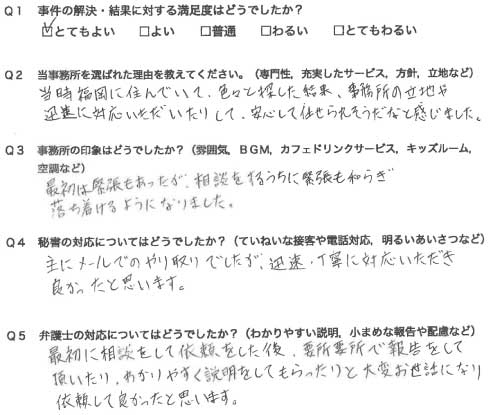 Q1 事件の解決・結果に対する満足度はどうでしたか?
☑とてもよい □よい □普通 □わるい □とてもわるい
Q2 当事務所を選ばれた理由を教えてください。(専門性, 充実したサービス, 方針, 立地など)
当時福岡に住んでいて、色々と探した結果、事務所の立地や
迅速に対応いただいたりして、安心して任せられそうだなと感じました。
Q3 事務所の印象はどうでしたか?(雰囲気, BGM, カフェドリンクサービス, キッズルーム,
空調など)
最初は緊張もあったが、相談をするうちに緊張も和らぎ
落ち着けるようになりました。
Q4 秘書の対応についてはどうでしたか?(ていねいな接客や電話対応, 明るいあいさつなど)
主にメールでのやり取りでしたが、迅速・丁寧に対応いただき
良かったと思います。
Q5 弁護士の対応についてはどうでしたか?(わかりやすい説明, 小まめな報告や配慮など)
最初に相談をして依頼をした後、要所要所で報告をして
頂いたり、わかりやすく説明をしてもらったりと大変お世話になり
依頼して良かったと思います。